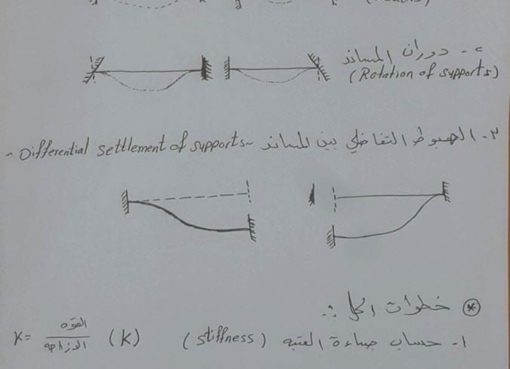 ٢- دوران المساند
(Rotation of supports)
٣- الهبوط التفاضلي بين المساند - Differential settlement of supports -
⊛ خطوات الحل :-
١- حساب جساءة العتبه (stiffness) (K) K = القوه / الازاحه